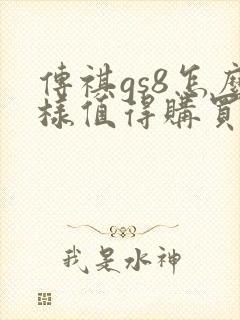 傳祺gs8怎麼
樣值得購買
我是水神